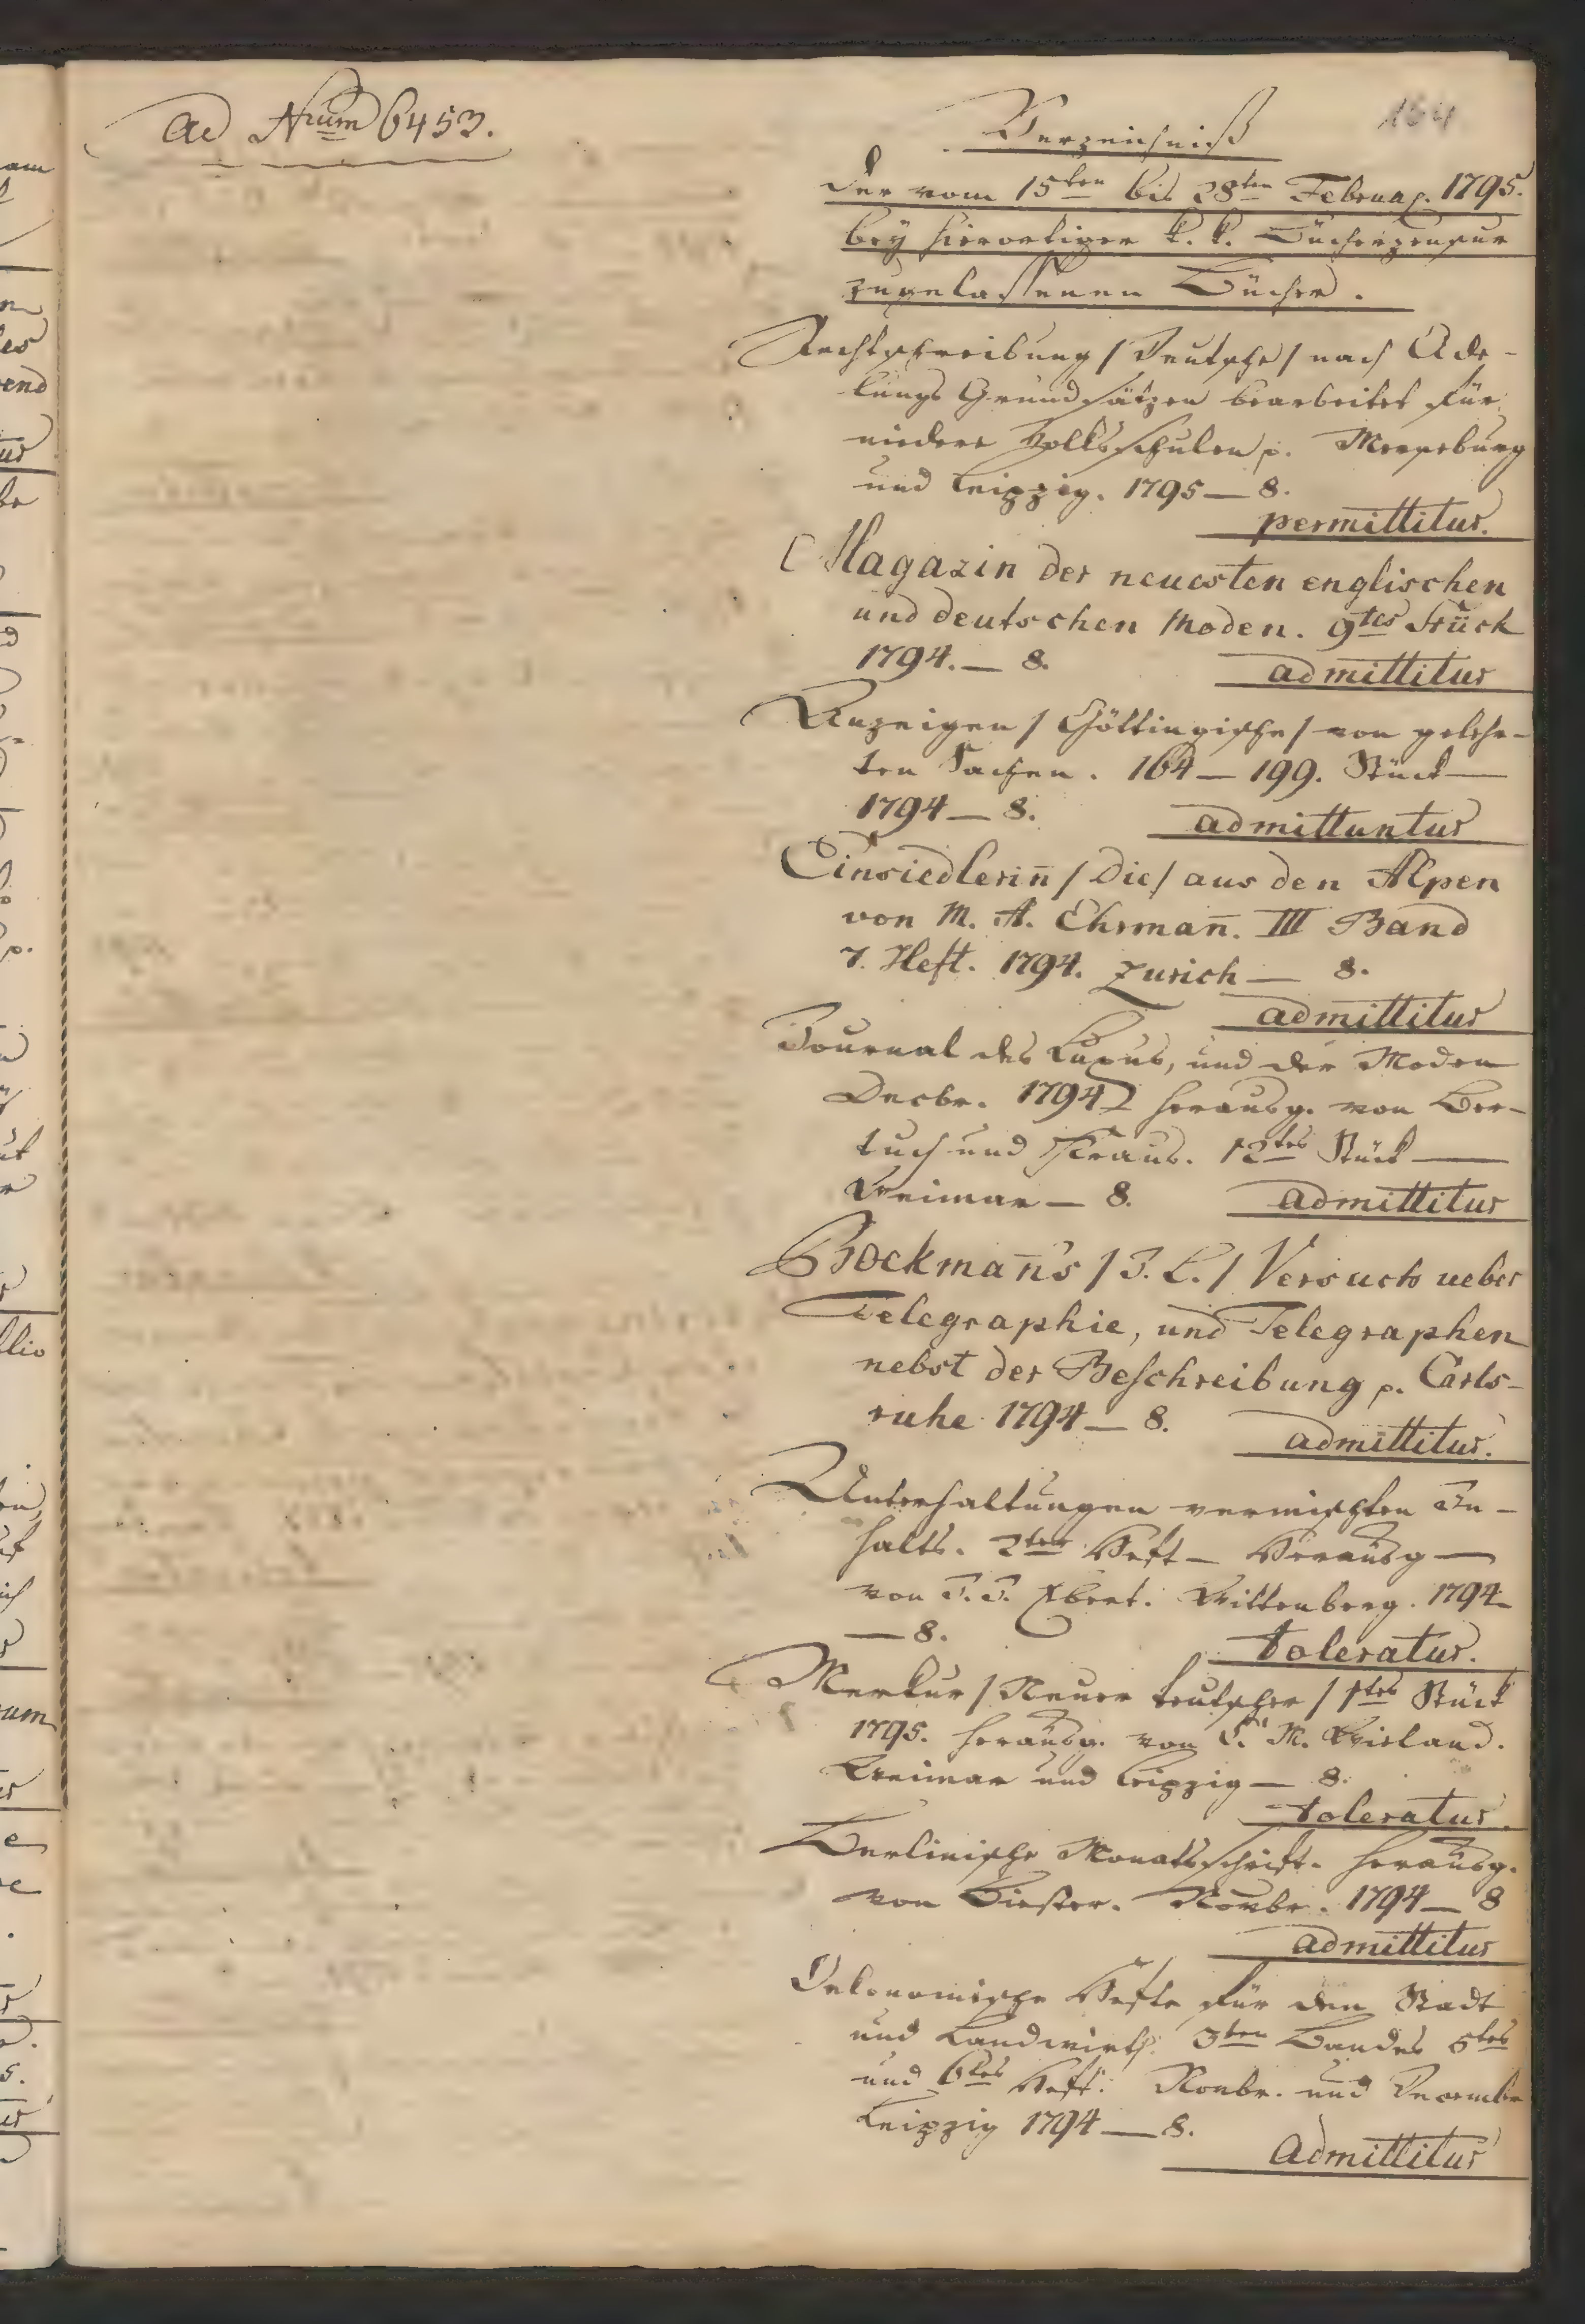 Ad Nrum 6453.
164
Verzeichniß
der vom 15ten bis 28ten Februar. 1795.
bey hierortiger k. k. Bücherzensur
zugelassenen Bücher.
Rechtschreibung / Deutsche / nach Ade-
lungs Grundsätzen bearbeitet für
niedere Volksschulen p. Merseburg
und Leipzig. 1795 — 8.
permittitur.
Magazin der neuesten englischen
und deutschen Moden. 9tes Stück
1794. — 8. admittitur
Anzeigen / Göttingische / von gelehr-
ten Sachen. 164 — 199. Stück —
1794 — 8. admittuntur
Einsiedlerin̄ / Die / aus den Alpen
von M. A. Ehrman̄. III Band
7. Heft. 1794. Zurich — 8.
admittitur
Journal des Luxus, und der Moden
Decbr. 1794 herausg. von Ber-
tuch und Kraus. 12tes Stück —
Weimar — 8. admittitur
Bockman̄s / J. L. / Versuch ueber
Telegraphie, und Telegraphen
nebst der Beschreibung p. Carls-
ruhe 1794 — 8. admittitur.
Unterhaltungen vermischten In-
halts. 2tes Heft — Herausg —
von J. J. Ebert. Wittenberg. 1794
— 8. toleratur.
Merkur / Neuer teutscher / 1tes Stück
1795. herausg. von C. M. Wieland.
Weimar und Leipzig — 8.
toleratur.
Berlinische Monatsschrift. herausg.
von Biester. Novbr. 1794 — 8
admittitur
Oekonomische Hefte für den Stadt
und Landwirth. 3ten Bandes 5tes
und 6tes Heft. Novbr. und Decembr
Leipzig 1794 — 8.
Admittitur